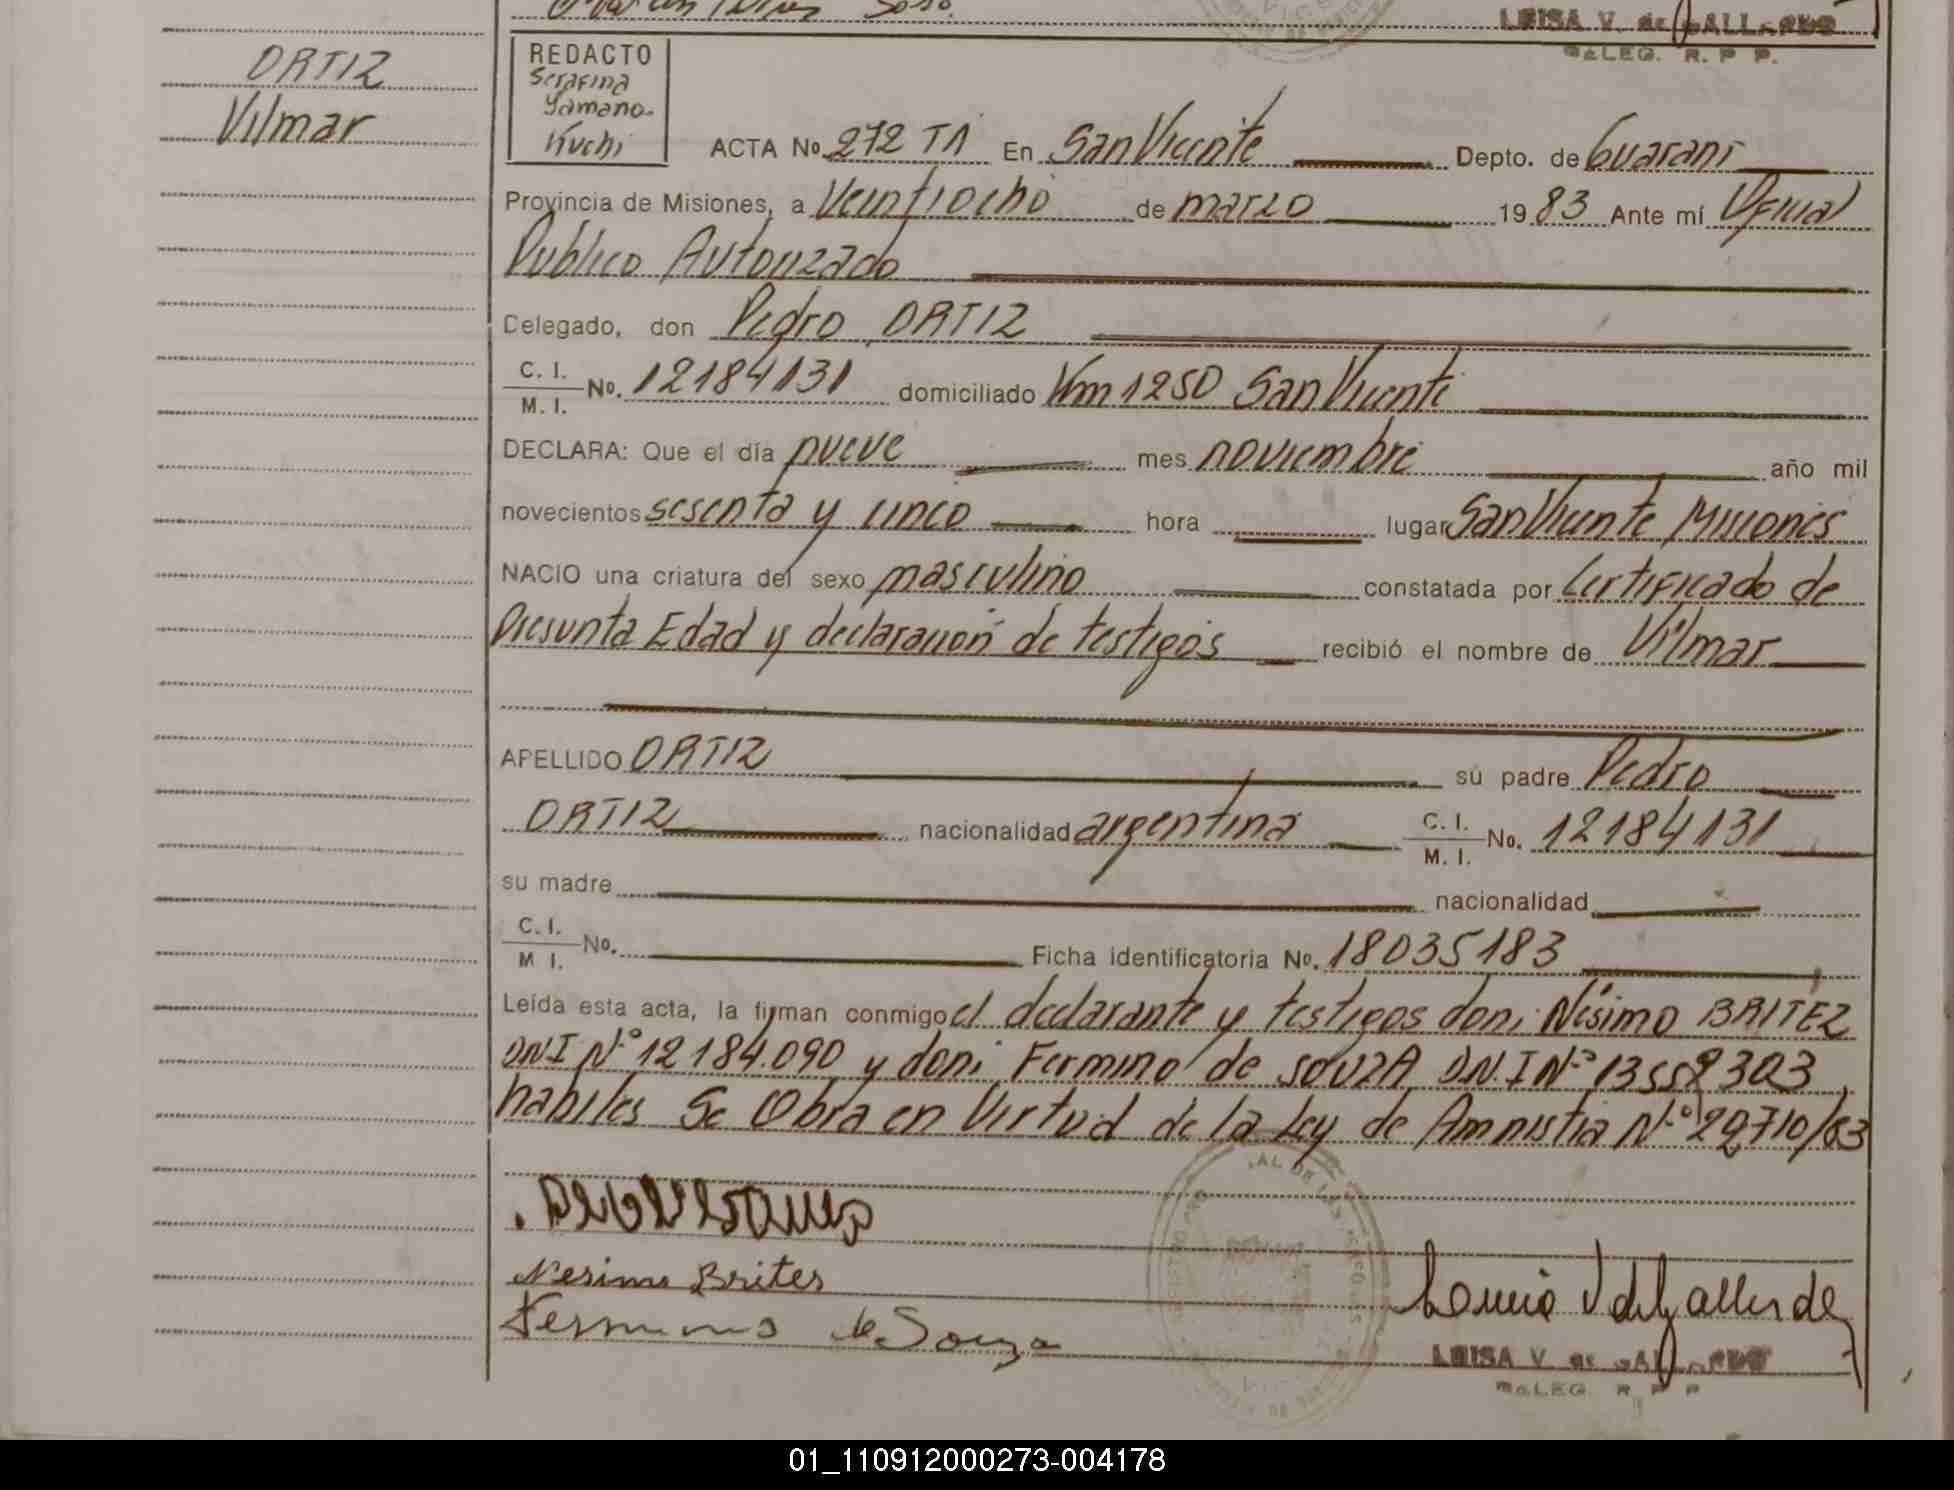 LUISA V. de GALLARDO
DELEG. R. P. P.
ORTIZ
Vilmar
REDACTO
Serafina
Yamano-
Kuchi
ACTA No. 272 TA En San Vicente Depto. de Guaraní
Provincia de Misiones, a Veintiocho de marzo 1983 Ante mí Oficial
Público Autorizado
Delegado, don Pedro ORTIZ
C. I.
M. I. No. 12184131 domiciliado Km 1250 San Vicente
DECLARA: Que el día nueve mes noviembre año mil
novecientos sesenta y cinco hora lugar San Vicente Misiones
NACIO una criatura del sexo masculino constatada por Certificado de
Presunta Edad y declaración de testigos recibió el nombre de Vilmar
APELLIDO ORTIZ su padre Pedro
ORTIZ nacionalidad argentina C. I.
M. I. No. 12184131
su madre nacionalidad
C. I.
M I. No. Ficha identificatoria No. 18035183
Leída esta acta, la firman conmigo el declarante y testigos don: Nésimo BRITEZ
DNI Nº 12184.090 y don: Fermino de SOUZA D.N.I Nº
habiles Se Obra en Virtud de la Ley de Amnistia Nº
Nesimo Brites
Fermino de Souza
LUISA V. de GALLARDO
DELEG. R. P. P
01_110912000273-004178